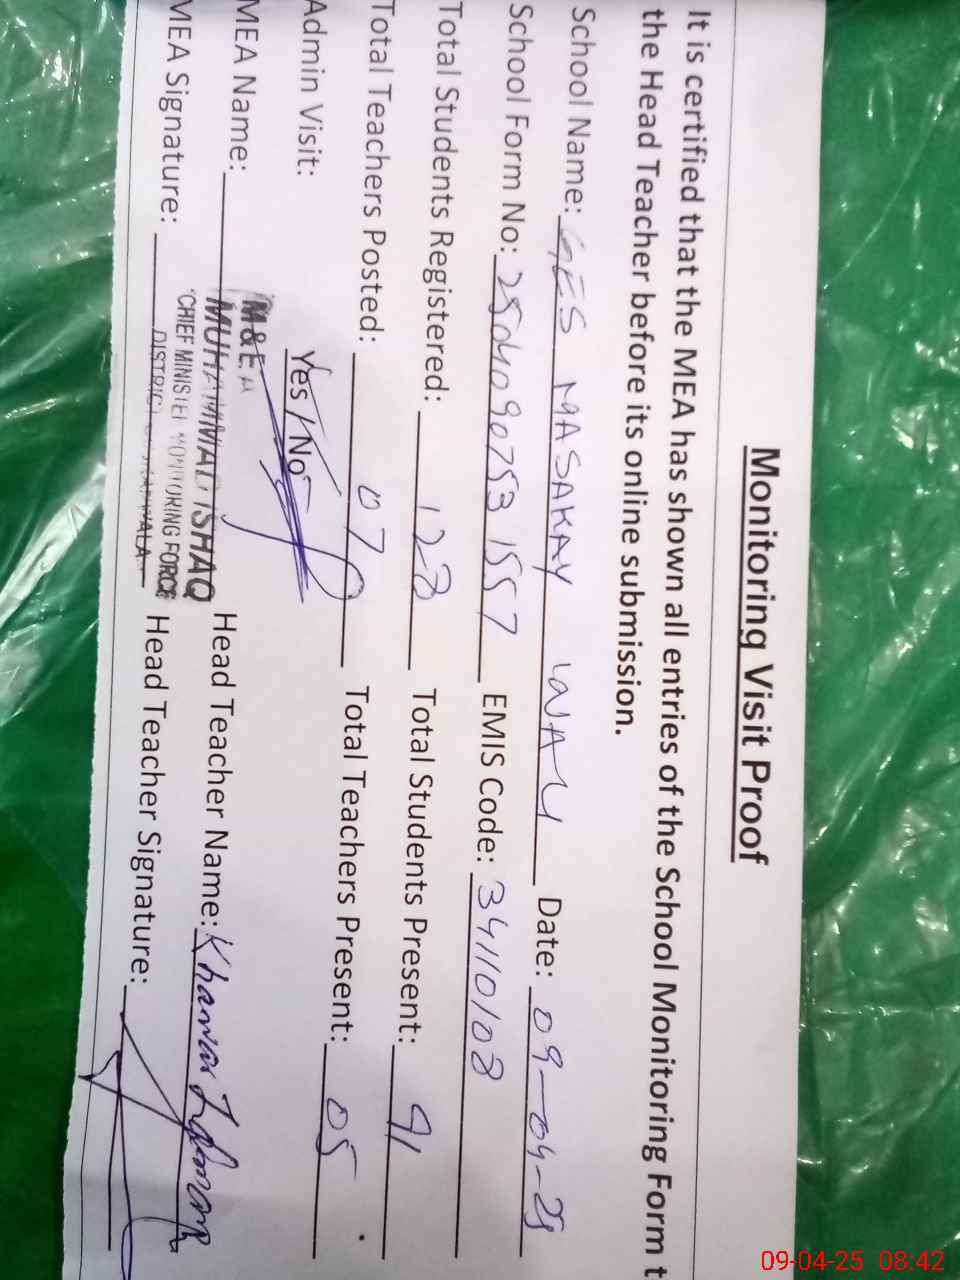 Monitoring Visit Proof
It is certified that the MEA has shown all entries of the School Monitoring Form t
the Head Teacher before its online submission.
School Name: GES MASAKAY WALI Date: 09-04-25
School Form No: 25040907531557 EMIS Code: 34110108
Total Students Registered: 123 Total Students Present: 91
Total Teachers Posted: 07 Total Teachers Present: 05
Admin Visit: Yes / No
M&EA
MEA Name: MUHAMMAD ISHAQ Head Teacher Name: Khawar
CHIEF MINISTER MONITORING FORCE
MEA Signature: Head Teacher Signature:
DISTRICT
09-04-25 08:42